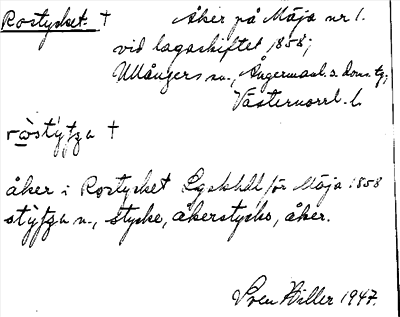 Rostycket † Åker på Mäja nr 1.
vid lagaskiftet 1858;
Ullångers sn., Ångermanl. s. doms. tg;
Västernorrl. l.
ròstýtza †
åker i Rostycket Lgskhdl för Mäja 1858
stýtza n., stycke, åkerstycke, åker.
Sven Hiller 1947.